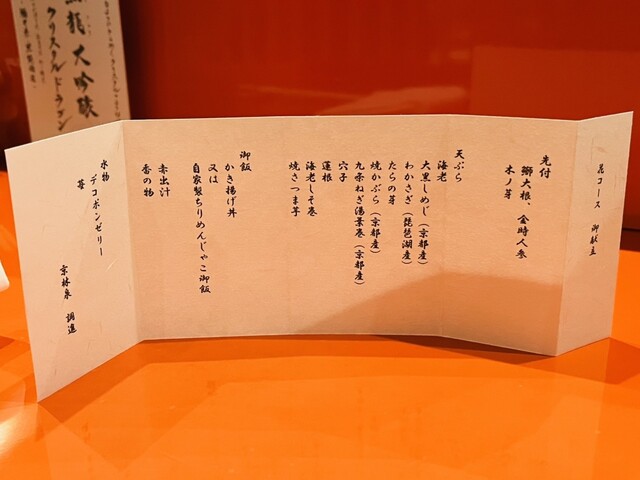 昆コース 御献立
先付
鰤大根、金時人参
木ノ芽
天ぷら
海老
大黒しめじ（京都産）
わかさぎ（琵琶湖産）
たらの芽
焼かぶら（京都産）
九条ねぎ湯葉巻（京都産）
穴子
蓮根
海老しそ巻
焼さつま芋
御飯
かき揚げ丼
又は
自家製ちりめんじゃこ御飯
赤出汁
香の物
水物
デコポンゼリー
苺
京林泉 調進
龍 大吟醸
クリスタルドラゴン